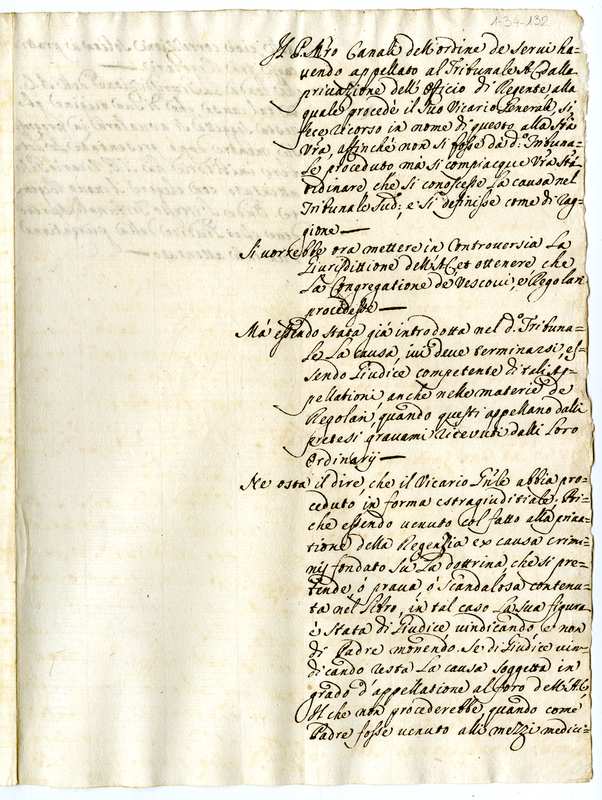 1-34-132
Il P. Mro Canali dell'ordine de Servi ha=
uendo appellato al Tribunale AC dalla
priuazione dell'Officio di Regente alla
quale procedè il suo Vicario Generale, si
fece ricorso in nome di questo alla Stà
Vrà, affinche non si fosse dà d.º Tribuna=
le proceduto mà si compiacque Vrà Stà
ordinare, che si conoscesse la causa nel
Tribunale sud.º, e si definisse come di rag=
gione —
Si uorrebbe ora mettere in controuersia la
Giurisdittione dell'AC et ottenere che
la Congregatione de Vescoui, e Regolari
procedesse —
Mà essendo stata già introdotta nel d.º Tribuna=
le la causa, iui deue terminarsi, es=
sendo Giudice competente di tali Ap=
pellationi anche nelle materie de
Regolari, quando questi appellano dalli
pretesi grauami riceuuti dalli loro
Ordinarij —
Ne osta il dire, che il Vicario Gnle abbia pro=
ceduto in forma estragiuditiale; Poi=
che essendo uenuto col fatto alla priua=
tione della Regenzia ex causa crimi=
nis fondato sù la dottrina, che si pre=
tende, ò praua, ò scandalosa contenu=
ta nel libro, in tal caso la sua figura
è stata di Giudice uindicando, e non
di Padre monendo. Se di Giudice uin=
dicando resta la causa soggetta in
grado d'appellatione al foro dell'AC
Il che non procederebbe quando come
Padre fosse uenuto alli mezzi medici=